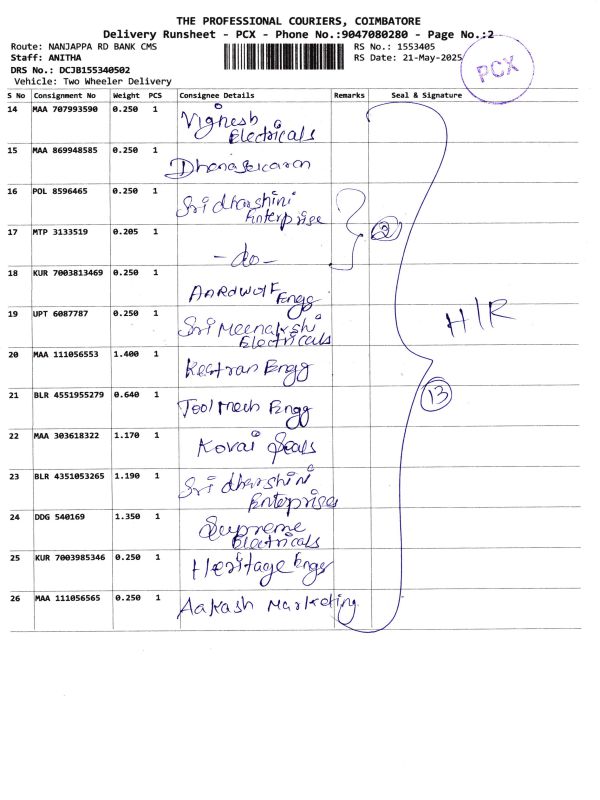 THE PROFESSIONAL COURIERS, COIMBATORE
Delivery Runsheet - PCX - Phone No.:9047080280 - Page No.:2
Route: NANJAPPA RD BANK CMS
RS No.: 1553405
Staff: ANITHA
RS Date: 21-May-2025
PCX
DRS No.: DCJB155340502
Vehicle: Two Wheeler Delivery
S No Consignment No Weight PCS Consignee Details Remarks Seal & Signature
14 MAA 707993590 0.250 1 Vignesh
Electricals
15 MAA 869948585 0.250 1 Dhanasekaran
16 POL 8596465 0.250 1 Sri dharshini
Enterprise
17 MTP 3133519 0.205 1 -do-
2
18 KUR 7003813469 0.250 1 Aardwolf Engg
19 UPT 6087787 0.250 1 Sri Meenakshi
Electricals
H/R
20 MAA 111056553 1.400 1 Engg
21 BLR 4551955279 0.640 1 Toolmech Engg
13
22 MAA 303618322 1.170 1 Kovai Seals
23 BLR 4351053265 1.190 1 Sri dharshini
Enterprises
24 DDG 540169 1.350 1 Supreme
Electricals
25 KUR 7003985346 0.250 1 Heritage Engg
26 MAA 111056565 0.250 1 Aakash Marketing